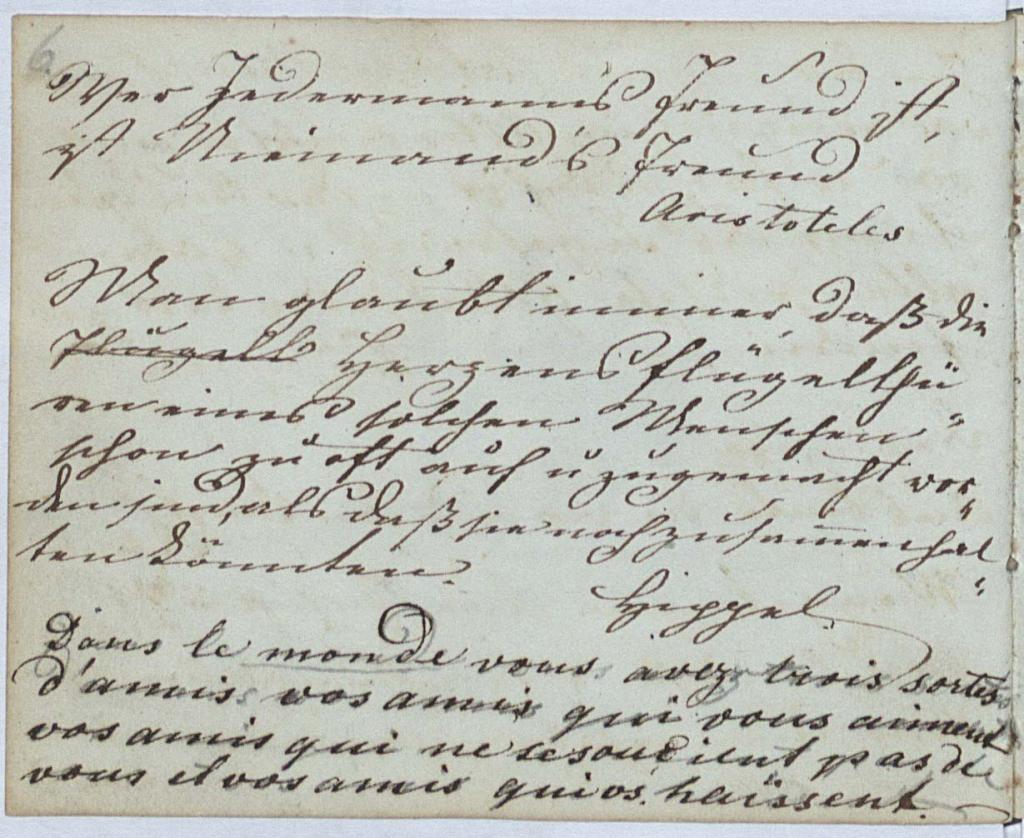 6.
Wer Jedermanns Freund ist,
ist Niemand's Freund
Aristoteles
Man glaubt immer, daß die
Flügell Herzensflügelthü
ren eines solchen Menschen
schon zu oft auf u zugemacht wor„
den sind, als daß sie noch zusammenhal„
ten könnten.
Hippel.
Dans le monde vous avez trois sortes
d'amis vos amis qui vous aiment
vos amis qui ne se soucient pas de
vous et vos amis qui vs. haïssent.